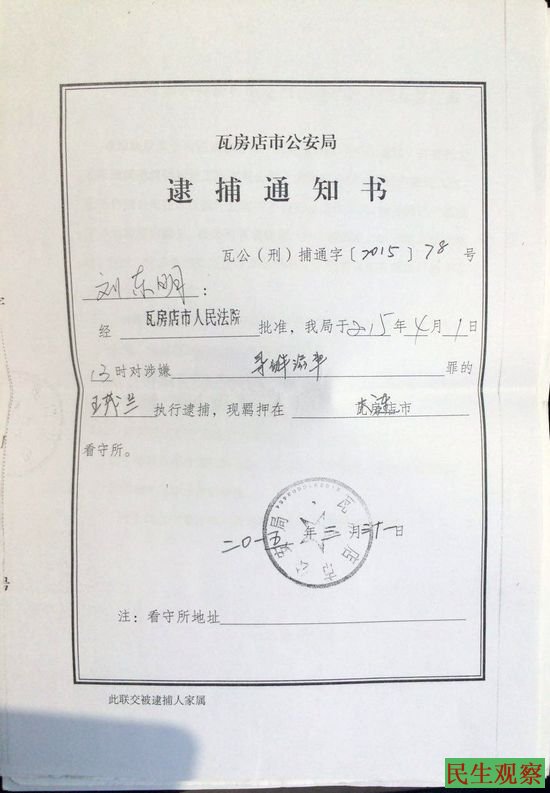 瓦房店市公安局
逮捕通知书
瓦公（刑）捕通字〔2015〕78号
刘东明：
经瓦房店市人民法院批准，我局于2015年4月1日
13时对涉嫌寻衅滋事罪的
王茂兰执行逮捕，现羁押在市
看守所。
二〇一五年三月三十一日
注：看守所地址
此联交被逮捕人家属
民生观察